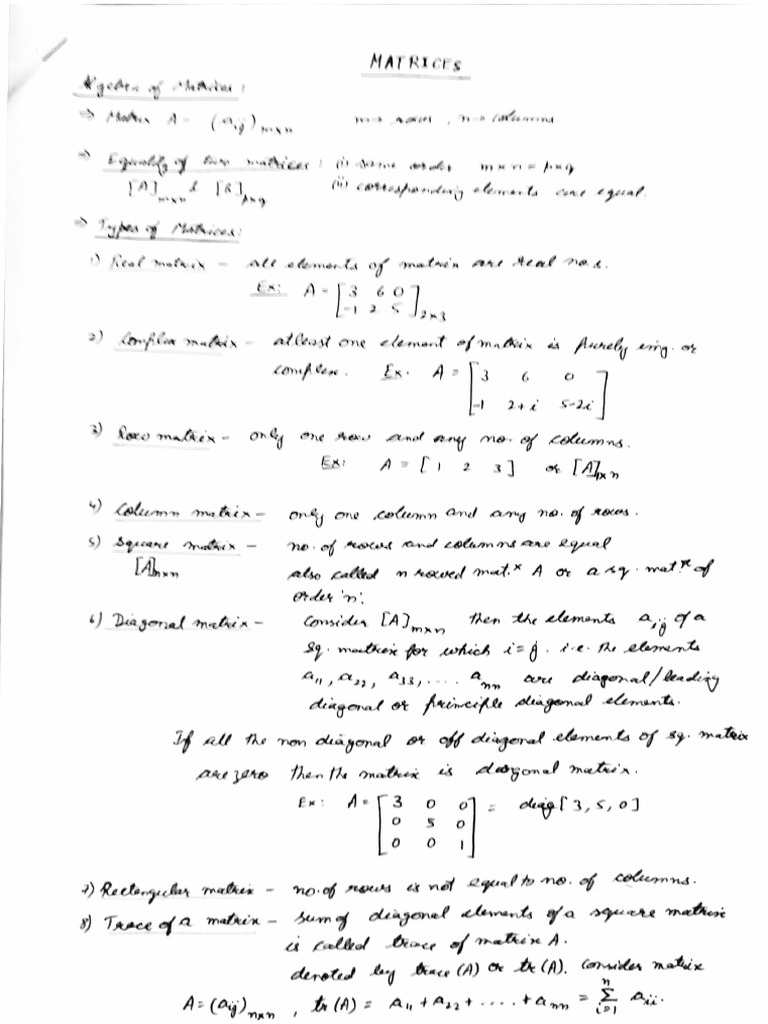 MATRICES
Algebra of Matrices:
⇒ Matrix A = (aij)m×n m → rows, n → columns
⇒ Equality of two matrices: (i) same order m×n = p×q
[A]m×n & [B]p×q (ii) corresponding elements are equal.
⇒ Types of Matrices:
1) Real matrix – all elements of matrix are real no.s.
Ex: A = [3 6 0
-1 2 5]2×3
2) Complex matrix – atleast one element of matrix is purely img. or
complex. Ex. A = [3 6 0
-1 2+i 5-2i]
3) Row matrix – only one row and any no. of columns.
Ex: A = [1 2 3] or [A]1×n
4) Column matrix – only one column and any no. of rows.
5) Square matrix – no. of rows and columns are equal
[A]n×n also called n rowed mat.x A or a sq. mat.x of
order 'n'.
6) Diagonal matrix – consider [A]m×n then the elements aij of a
sq. matrix for which i = j. i.e. the elements
a11, a22, a33, .... ann are diagonal/leading
diagonal or principle diagonal elements.
If all the non diagonal or off diagonal elements of sq. matrix
are zero then the matrix is diagonal matrix.
Ex: A = [3 0 0
0 5 0
0 0 1] = diag[3, 5, 0]
7) Rectangular matrix – no. of rows is not equal to no. of columns.
8) Trace of a matrix – sum of diagonal elements of a square matrix
is called trace of matrix A.
denoted by trace(A) or tr(A). Consider matrix
A = (aij)n×n, tr(A) = a11 + a22 + ..... + ann = Σ(i=1 to n) aii.